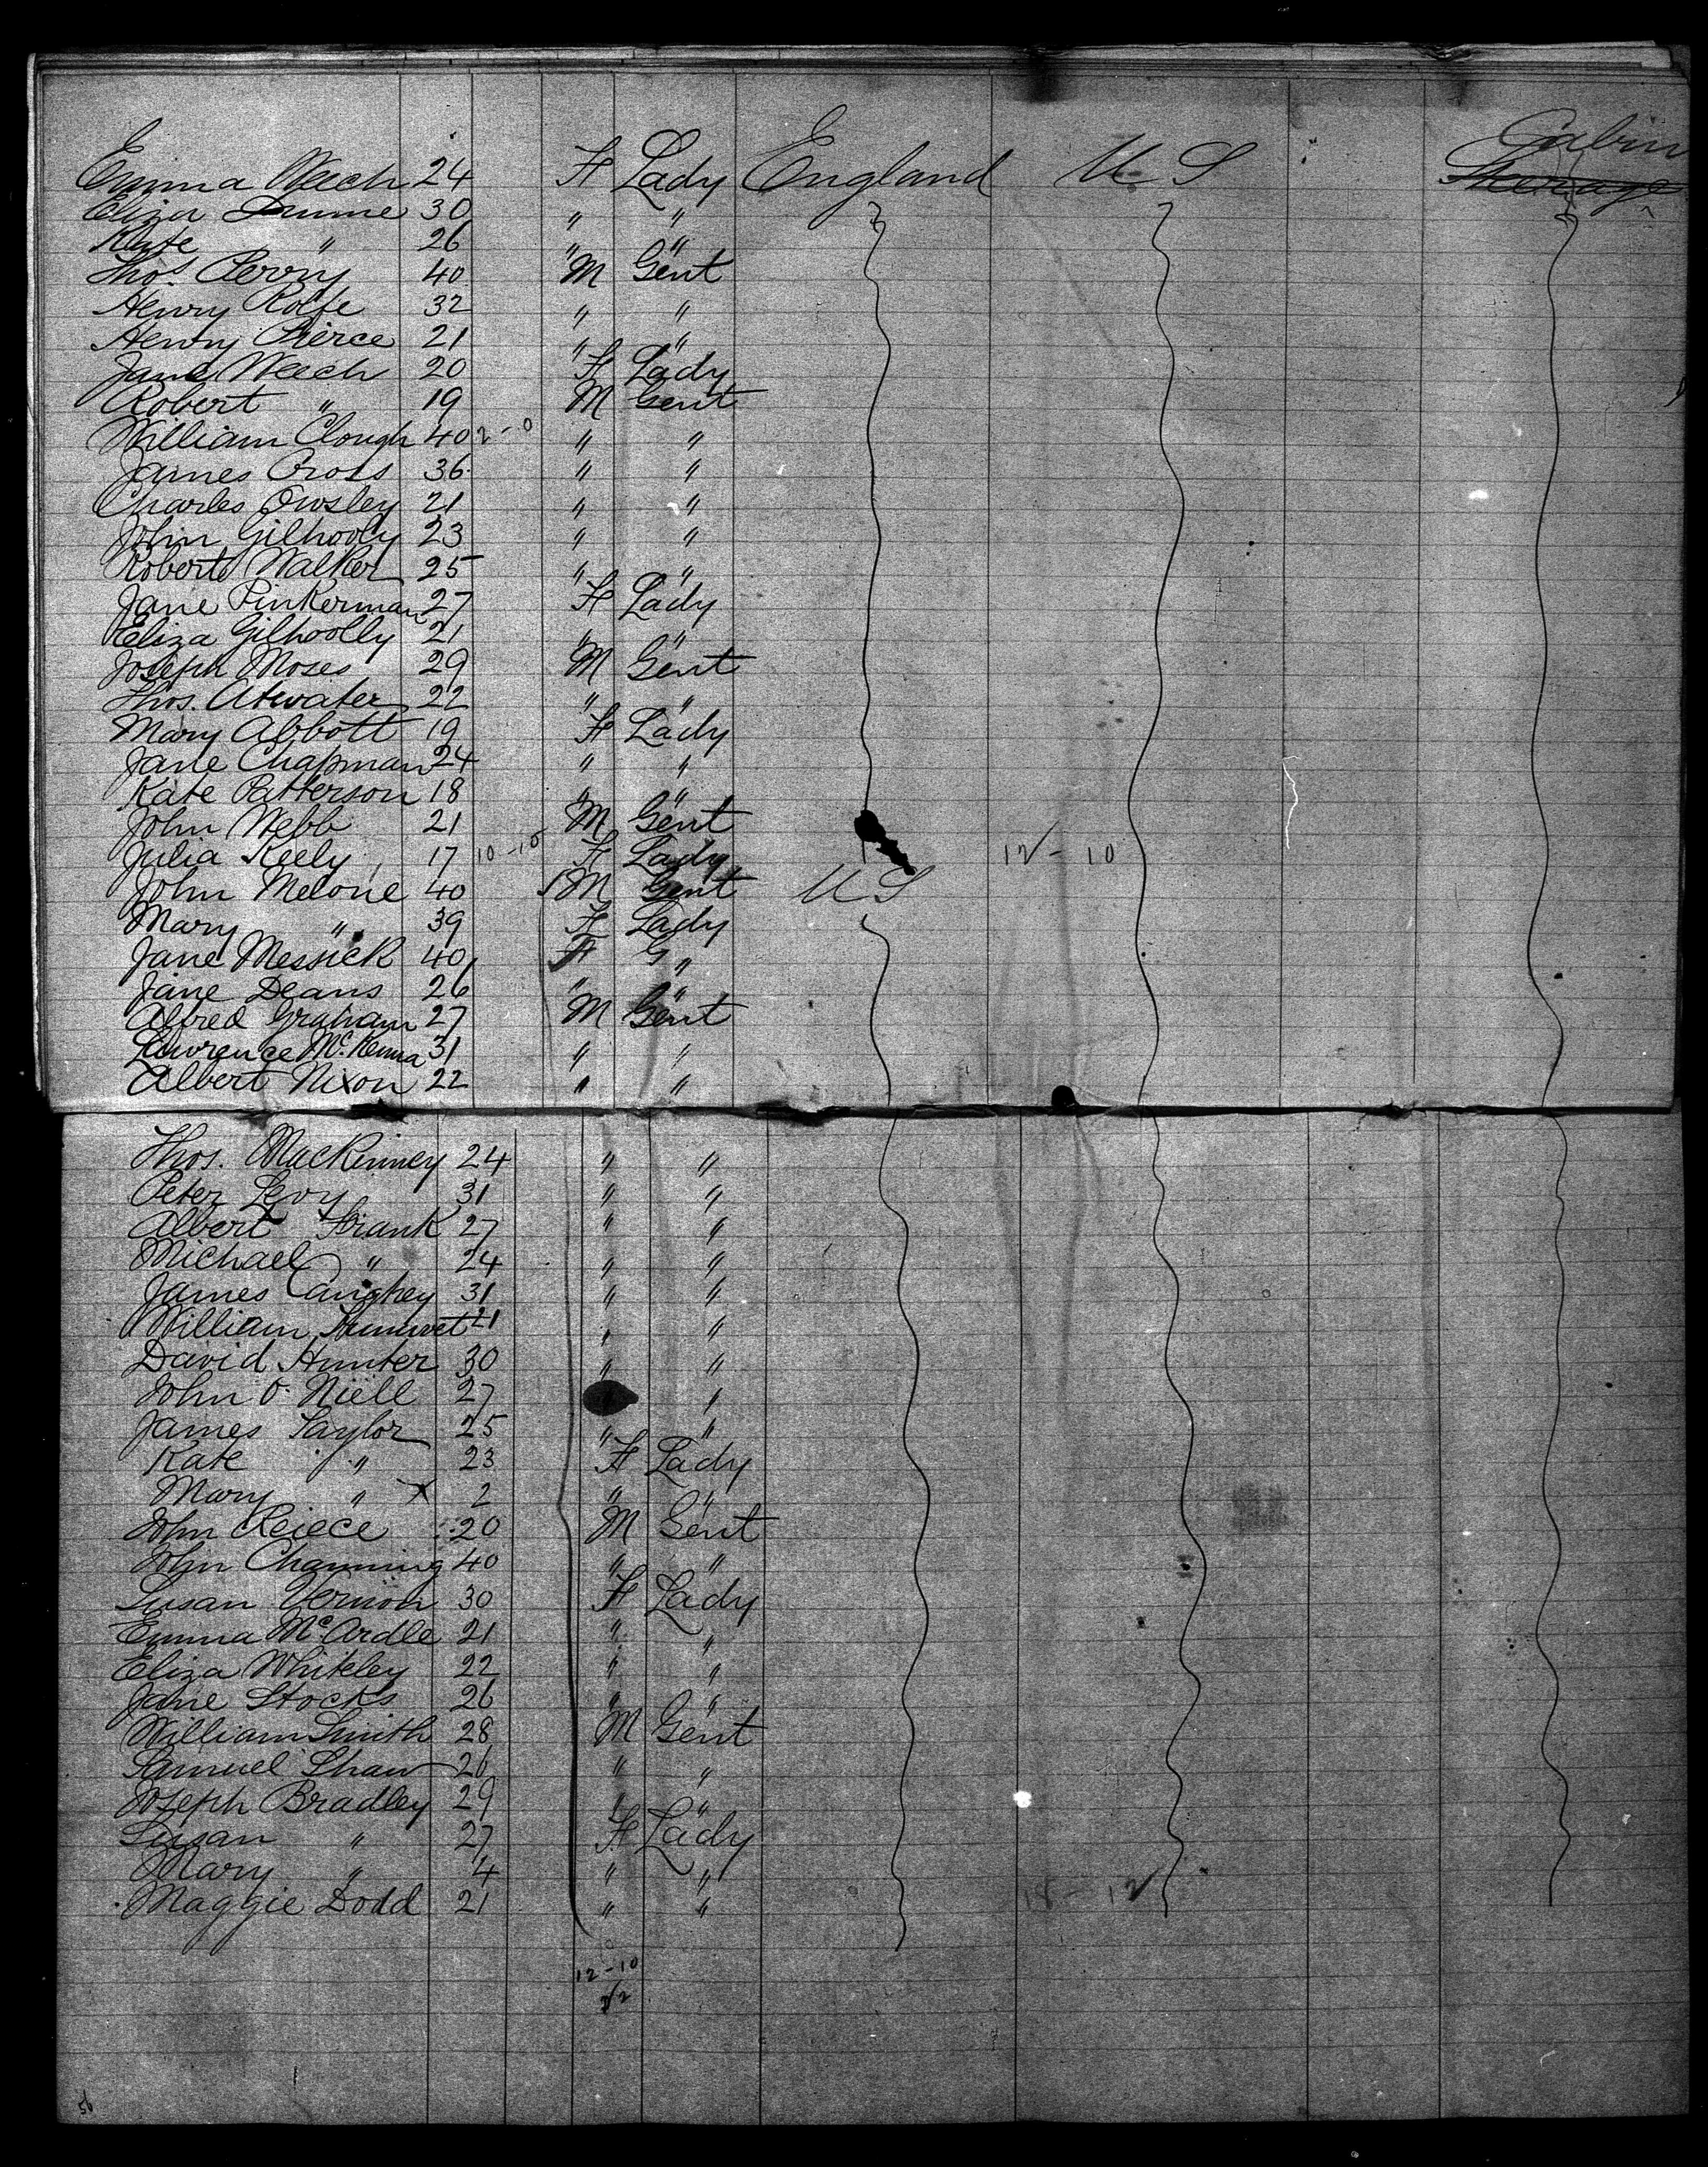 Cabin
Emma Weech 24 F Lady England U S Steerage
Eliza Dunne 30 " "
Kate " 26 " "
Thos. Perry 40 M Gent
Henry Rolfe 32 " "
Henry Pierce 21 " "
Jane Weech 20 F Lady
Robert " 19 M Gent
William Clough 40 2-0 " "
James Cross 36 " "
Charles Owsley 21 " "
John Gilhooly 23 " "
Robert Walker 25 " "
Jane Pinkerman 27 F Lady
Eliza Gilhoolly 21 " "
Joseph Moses 29 M Gent
Thos. Atwater 22 " "
Mary Abbott 19 F Lady
Jane Chapman 24 " "
Kate Patterson 18 " "
John Webb 21 M Gent
Julia Keely 17 10-10 F Lady 12-10
John Melone 40 M Gent U S
Mary " 39 F Lady
Jane Messick 40 F "
Jane Deans 26 " "
Alfred Graham 27 M Gent
Lawrence McKenna 31 " "
Albert Nixon 22 " "
Thos. MacKinney 24 " "
Peter Levy 31 " "
Albert Frank 27 " "
Michael " 24 " "
James Caughey 31 " "
William 21 " "
David Hunter 30 " "
John O. Niell 27 "
James Taylor 25 " "
Kate " 23 F Lady
Mary " x 2 " "
John Reiece 20 M Gent
John Channing 40 " "
Susan Vernon 30 F Lady
Emma McArdle 21 " "
Eliza Whiteley 22 " "
Jane Stocks 26 " "
William Smith 28 M Gent
Samuel Shaw 26 " "
Joseph Bradley 29 " "
Susan " 27 F Lady
Mary " 4 " "
Maggie Dodd 21 " " 18-12
12-10
56